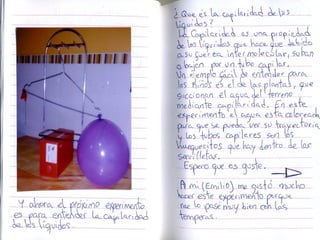 Y ahora el próximo experimento
es para entender la capilaridad
de los líquidos.
¿Que és la capilaridad de los
líquidos?
La Capilaridad es una propiedad
de los líquidos que hace que debido
a su fuerza intermolecular, suban
o bajen por un tubo capilar.
Un ejemplo fácil de entender para
los niños es el de las plantas, que
succionan el agua del terreno
mediante capilaridad. En este
experimento el agua está coloreada
para que se pueda ver su trayectoria
y los tubos capilares son los
huequecitos que hay dentro de las
servilletas.
Espero que os guste.
A mi (Emilio) me gustó mucho
hacer este experimento porque
me lo pase muy bien con las
temperas.